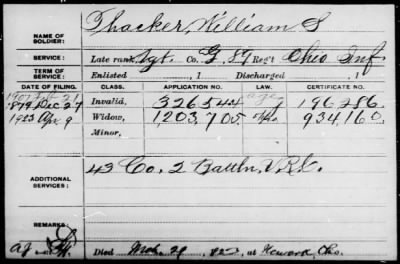 Thacker, William S
NAME OF SOLDIER:
SERVICE: Late rank Sgt. Co. G, 87 Reg't Ohio Inf
TERM OF SERVICE: Enlisted , 1 Discharged , 1
DATE OF FILING. CLASS. APPLICATION NO. CERTIFICATE NO.
1907 Feb 21
1879 Dec 27 Invalid, 326544 196,286
1923 Apr. 9 Widow, 1,203,705 934,160.
Minor,
ADDITIONAL SERVICES: 43 Co. 2 Battln. V.R.C.
REMARKS:
Died Mch. 29, 1923, at Howard, Oho.